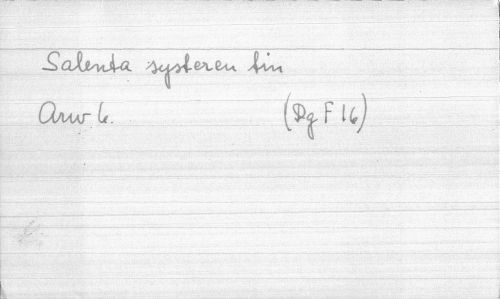 Salenta systeren tin
Arw 6. (Dg F 16)